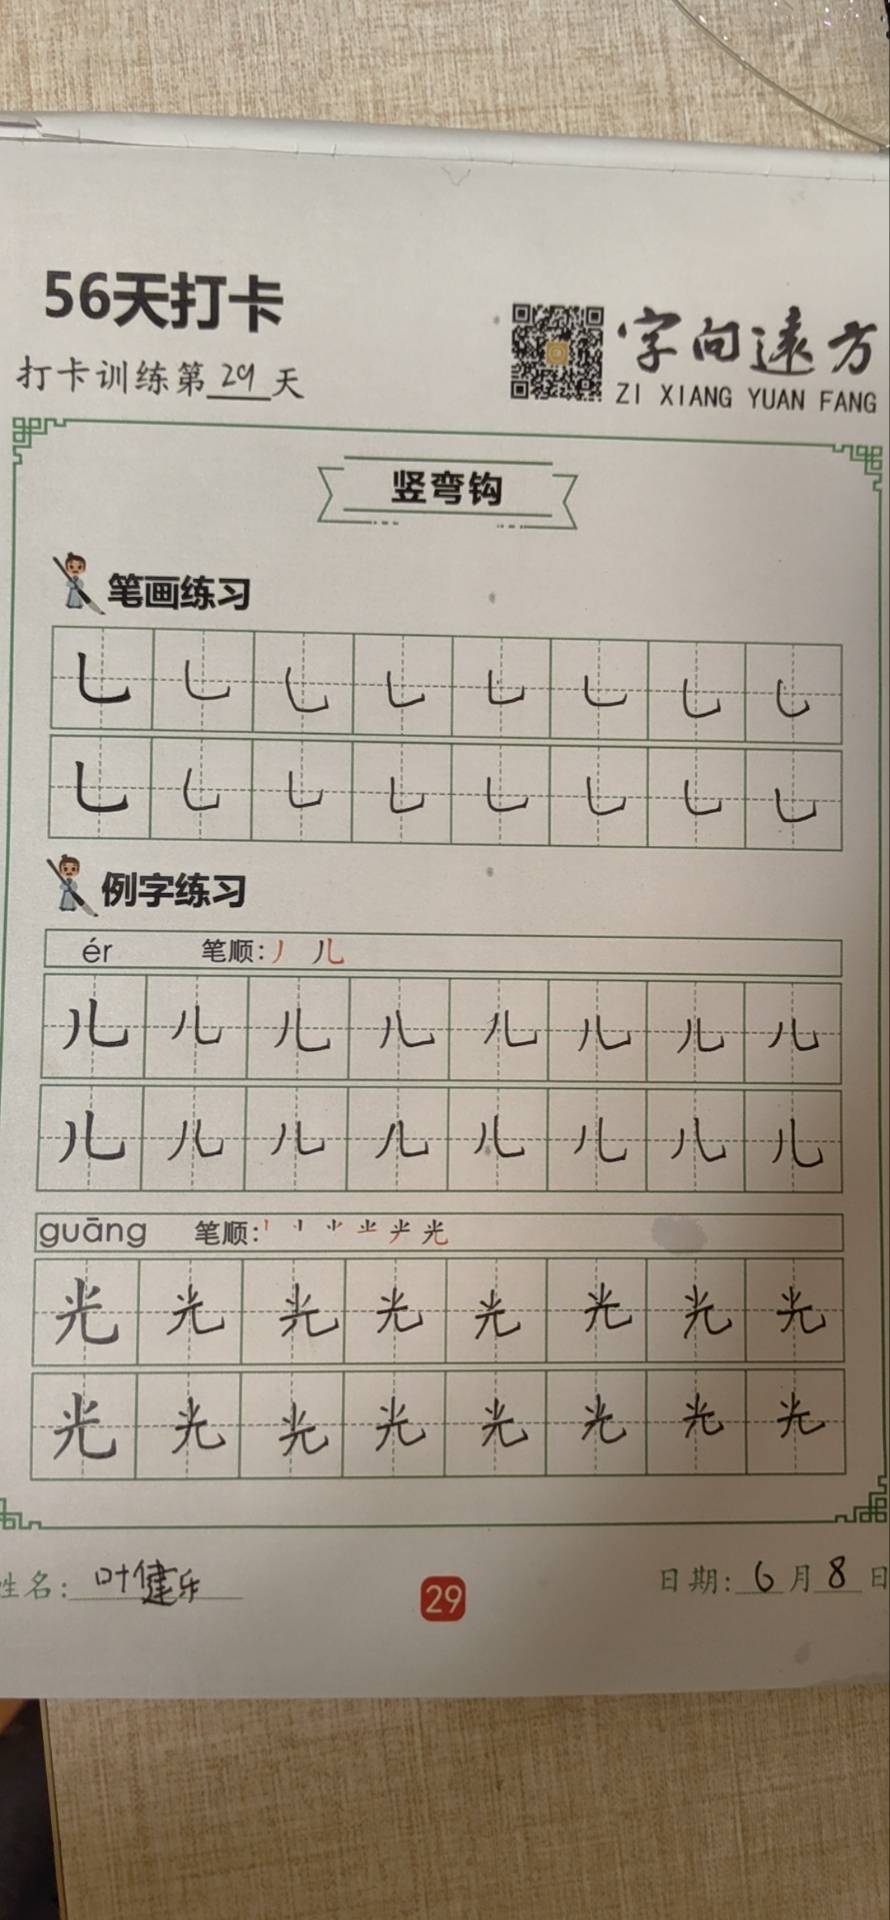 56天打卡
打卡训练第29天
字向遠方
ZI XIANG YUAN FANG
竖弯钩
笔画练习
乚 乚 乚 乚 乚 乚 乚 乚
乚 乚 乚 乚 乚 乚 乚 乚
例字练习
ér 笔顺:丿 儿
儿 儿 儿 儿 儿 儿 儿 儿
儿 儿 儿 儿 儿 儿 儿 儿
guāng 笔顺:
光 光 光 光 光 光 光 光
光 光 光 光 光 光 光 光
姓名:叶健乐
29
日期:6月8日